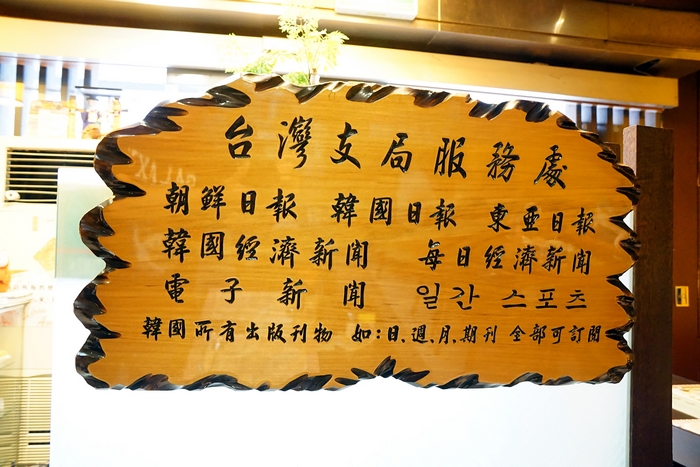 台灣支局服務處
朝鮮日報 韓國日報 東亞日報
韓國經濟新聞 每日經濟新聞
電子新聞 일간 스포츠
韓國所有出版刊物 如:日,週,月,期刊 全部可訂閱